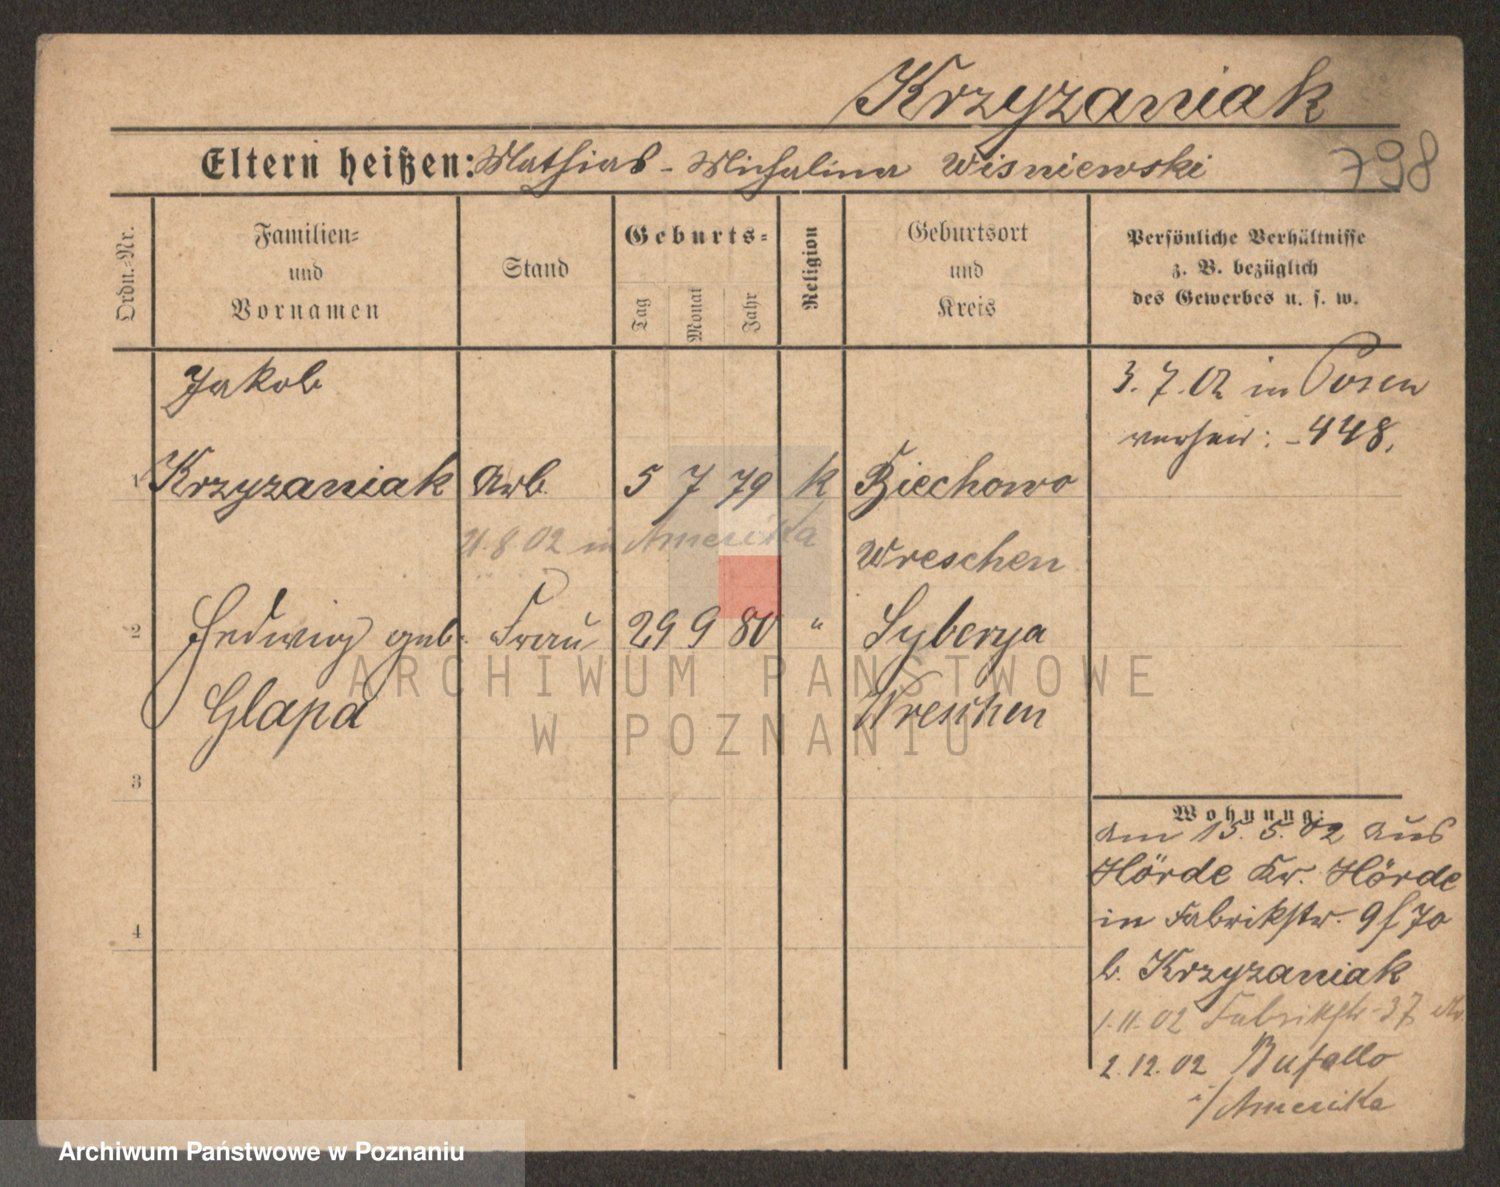 Krzyzaniak
Eltern heißen: Mathias - Michalina Wisniewski
798
Ordn.-Nr.
Familien-
und
Vornamen
Stand
Geburts-
Tag
Monat
Jahr
Religion
Geburtsort
und
Kreis
Persönliche Verhältnisse
z. B. bezüglich
des Gewerbes u. s. w.
Jakob
3. 7. 02 in Posen
verheir: - 448.
1 Krzyzaniak Arb. 5 7 79 k Biechowo
21. 8 02 in Amerika
Wreschen
2 Hedwig geb. Frau 29 9 80 " Syberya
Glapa Wreschen
ARCHIWUM PAŃSTWOWE
W POZNANIU
3
4
Wohnung:
am 15. 5. 02 aus
Hörde Kr. Hörde
in Fabrikstr. 9/70
b. Krzyzaniak
1. 11. 02 Fabrikstr 37
2. 12. 02 Bufallo
i/Amerika
Archiwum Państwowe w Poznaniu